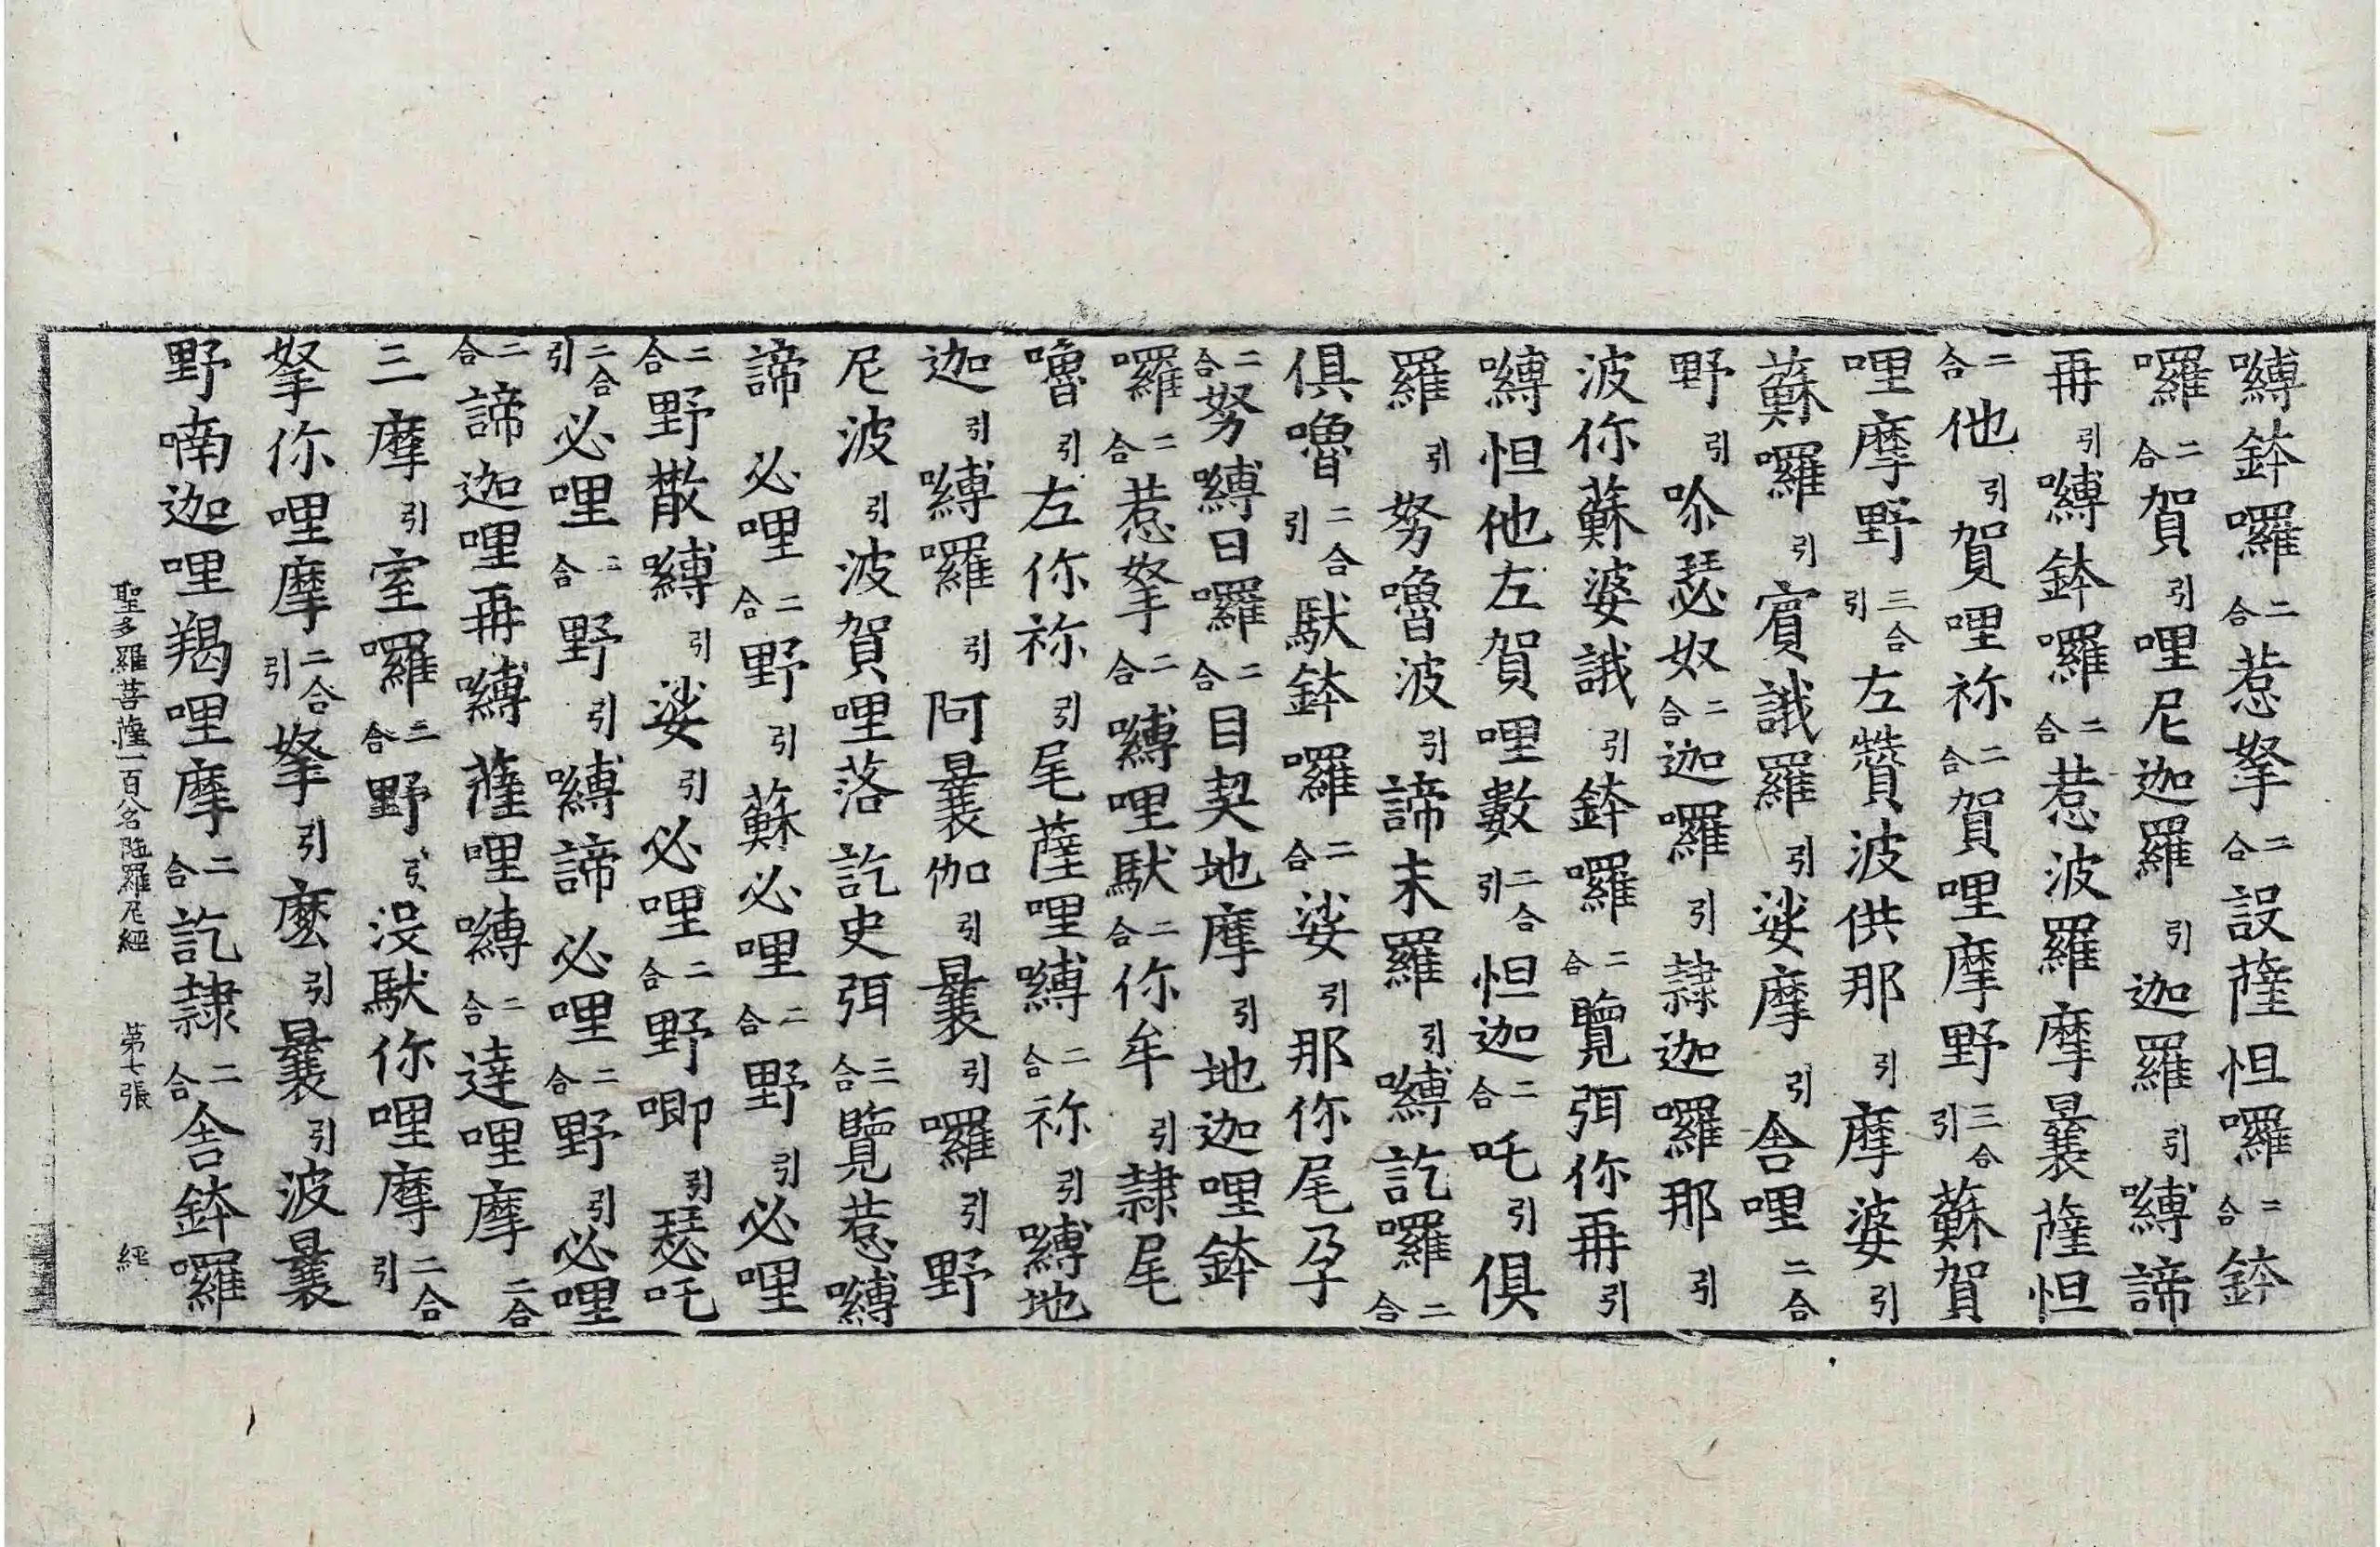 嚩鉢囉二合惹拏二合設薩怛囉二合鉢
囉二合賀引哩尼迦羅引迦羅引嚩諦
再引嚩鉢囉二合惹波羅摩曩薩怛
二合他引賀哩祢二合賀哩摩野三合引蘇賀
哩摩野三合引左贊波供那引摩婆引
蘇囉引賓誐羅引娑摩引舍哩二合
野引唥瑟奴二合迦囉引隷迦囉那引
波你蘇婆誐引鉢囉二合覽弭你再引
嚩怛他左賀哩數二合引怛迦二合吒引俱
羅引努嚕波引諦末羅引嚩訖囉二合
俱嚕二合引馱鉢囉二合娑引那你尾孕
二合努嚩日囉二合目契地摩引地迦哩鉢
囉二合惹拏二合嚩哩馱二合你牟引隷尾
嚕引左你祢引尾薩哩嚩二合祢引嚩地
迦引嚩囉引阿曩伽引曩引囉引野
尼波引波賀哩落訖史弭三合覽惹嚩
諦必哩二合野引蘇必哩二合野引必哩
二合野散嚩引娑引必哩二合野唧引瑟吒
二合引必哩二合野引嚩諦必哩二合野引必哩
二合諦迦哩再嚩薩哩嚩二合達哩摩二合
三摩引室囉二合野引沒馱你哩摩二合引
拏你哩摩二合引拏引麼引曩引波曩
野喃迦哩羯哩摩二合訖隷二合舍鉢囉
聖多羅菩薩一百八名陁羅尼經 第七張 經